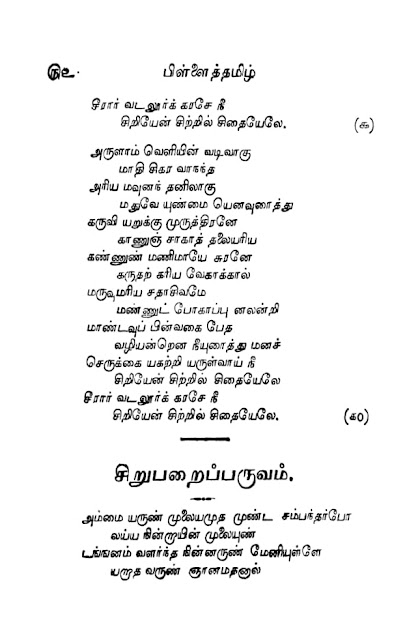 ௫௨. பிள்ளைத்தமிழ்
சீரார் வடலூர்க் கரசே நீ
சிறியேன் சிற்றில் சிதையேலே. (௯)
அருளாம் வெளியின் வடிவாகு
மாதி சிகர வாநந்த
அரிய மவுனந் தனிலாகு
மதுவே யுண்மை யெனவுரைத்து
கருவி யறுக்கு முருத்திரனே
காணுஞ் சாகாத் தலையரிய
கண்ணுண் மணிமாயே சுரனே
கருதற் கரிய வேகாக்கால்
மருவுமரிய சதாசிவமே
மண்ணுட் போகாப்பு னலன்றி
மாண்டவுப் பின்வகை பேத
வழியன்றென நீயுரைத்து மனச்
செருக்கை யகற்றி யருள்வாய் நீ
சிறியேன் சிற்றில் சிதையேலே
சீரார் வடலூர்க் கரசே நீ
சிறியேன் சிற்றில் சிதையேலே. (௧௦)
சிறுபறைப்பருவம்.
அம்மை யருண் முலையமுத முண்ட சம்பந்தர்போ
லய்ய நின்றாயின் முலையுண்
டங்ஙனம் வளர்ந்த நின்னருண் மேனியுள்ளே
யறாத வருண் ஞானமதனால்